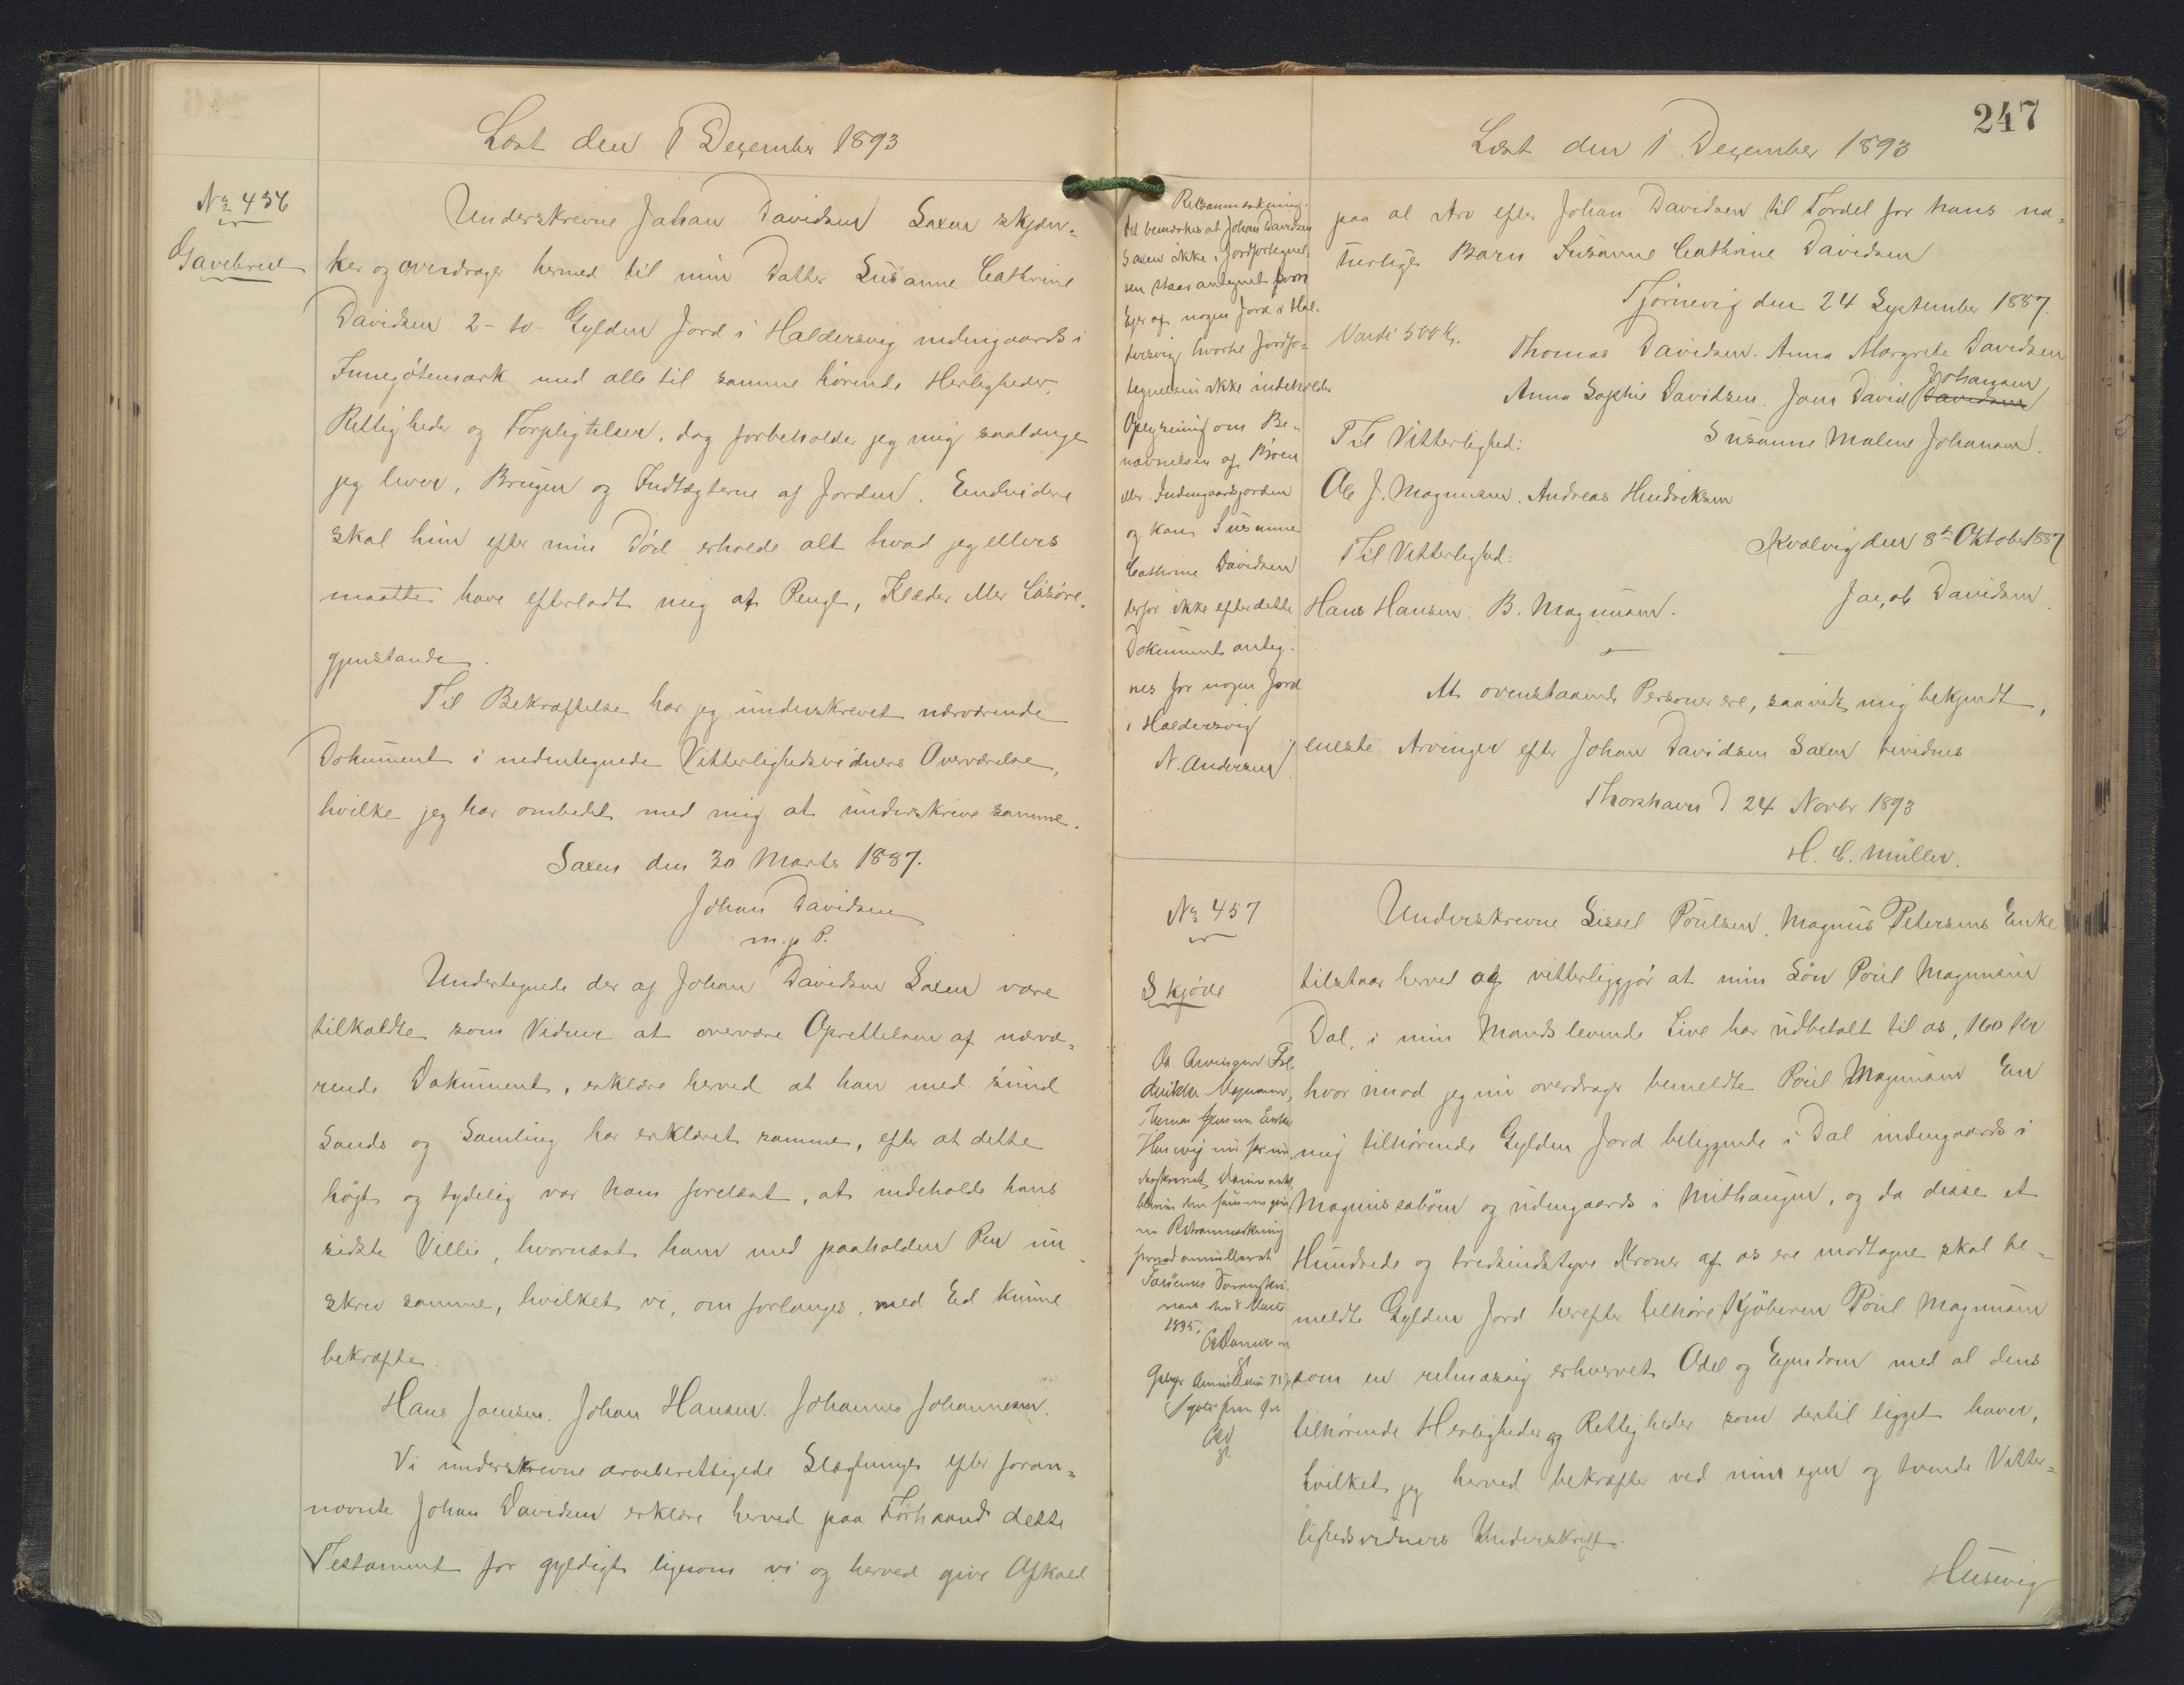 Læst den 1 Dezember 1893
No 456
Gavebrev
Underskrevne Johan Davidsen Saxen skjæn=
ker og overdrager hermed til min Datter Susanne Cathrine
Davidsen 2 - to - Gylden Jord i Haldersvig indengaards i
Innegötemark med alle til samme hörende Herligheder,
Rettigheder og Forpligtelser, dog forbeholder jeg mig saalænge
jeg lever, Brugen og Indtægterne af Jorden. Endvidere
skal hun efter min Död erholde alt hvad jeg ellers
maatte have efterladt mig af Penge, Klæder eller Lösöre,
gjenstande.
Til Bekræftelse har jeg underskrevet nærværende
Dokument i nedentegnede Vitterlighedsvidners Overværelse,
hvilke jeg har ombedet med mig at underskrive samme.
Saxen den 30 Marts 1887.
Johan Davidsen
m. p. P.
Undertegnede der af Johan Davidsen Saxen vare
tilkaldte som Vidner at overvære Oprettelsen af nærvæ=
rende Dokument, erklære herved at han med sund
Sands og Samling har erklæret samme, efter at dette
höjt og tydelig var ham forelæst, at indeholde hans
sidste Villie, hvornæst han med paaholden Pen un
skrev samme, hvilket vi, om forlanges, med Ed kunne
bekræfte.
Hans Joensen. Johan Hansen. Johannes Johannesen.
Vi underskrevne arveberettigede Slægtninge efter foran=
nævnte Johan Davidsen erklære herved paa Forhaand dette
Testament for gyldigt ligesom vi og herved give Afkald
247
Læst den 1 Dezember 1893
Retsanmærkning.
det bemærkes at Johan Davidsen
Saxen ikke i Jordfortegnel-
sen staar antegnet som
Ejer af nogen Jord i Hal-
dersvig, hvorhos Jordfor-
tegnelsen ikke indeholder
Oplysning om Be-
nævnelsen af Böen
eller Indengaardsjorden
og kan Susanne
Cathrine Davidsen
derfor ikke efter dette
Dokument anteg-
nes for nogen Jord
i Haldersvig
N. Andersen
paa al Arv efter Johan Davidsen til Fordel for hans na=
turlige Barn Susanne Cathrine Davidsen
Tjörnevig den 24 September 1887.
Værdi 500 Kr.
Thomas Davidsen. Anna Margrete Davidsen
Anna Sophie Davidsen. Joen David Davidsen Johansen
Susanne Malene Johansen.
Til Vitterlighed:
Ole J. Magnusen. Andreas Hendriksen
Kvalvig den 8de Oktober 1887
Til Vitterlighed:
Jacob Davidsen
Hans Hansen. B. Magnusen.
At ovenstaaende Personer ere, saavidt mig bekjendt,
eneste Arvinger efter Johan Davidsen Saxen bevidnes
Thorshavn d 24 Novbr 1893
H. C. Müller.
No 457
Skjöde
Underskrevne Sissel Poulsen, Magnus Petersens Enke
tilstaar herved og vitterliggjör at min Sön Poul Magnusen
Dal, i min Mands levende Live har udbetalt til os, 160 Kr
hvor imod jeg nu overdrager bemeldte Poul Magnusen En
mig tilhörende Gylden Jord beliggende i Dal indengaards i
Magnussabömn og udengaards i Mithaugen, og da disse et
Hundrede og tredsindstyve Kroner af os ere modtagne skal be=
meldte Gylden Jord herefter tilhöre Kjöberen Poul Magnusen
som en retmæssig erhvervet Odel og Ejendom med al dens
tilhörende Herligheder og Rettigheder som dertil ligget haver,
hvilket jeg herved bekræfter ved min egen og tvende Vitter=
lighedsvidners Underskrift.
Husevig
Thomas Jensens Enke
Husevig
Retsanmærkning
1895.